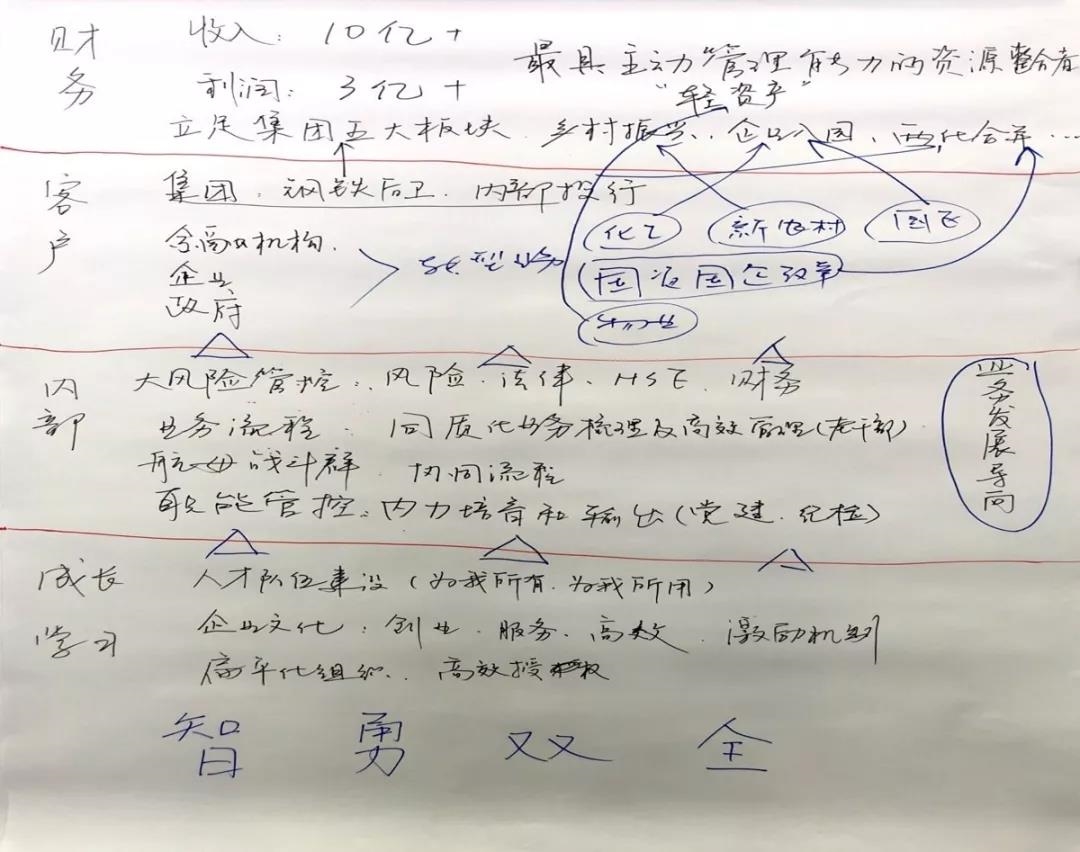 财务
收入：10亿+
利润：3亿+
最具主动"管理能力的资源整合者
"轻资产"
立足集团五大板块、乡村振兴、企口公园、两化合并…
客户
集团、钢铁后卫、内部投行
金商机构、
企业
政府
转型业务
化工
新农村
国资国企改革
物业
内部
大风险管控：风险、法律、HSE、财务
业务流程：同质化业务梳理及高效管理(老干部)
航母战斗群、协同流程
职能管控：内力培育和输出(党建、纪检)
业务发展导向
成长学习
人才队伍建设(为我所有、为我所用)
企业文化：创业、服务、高效、激励机制
扁平化组织、高效授权
智勇双全